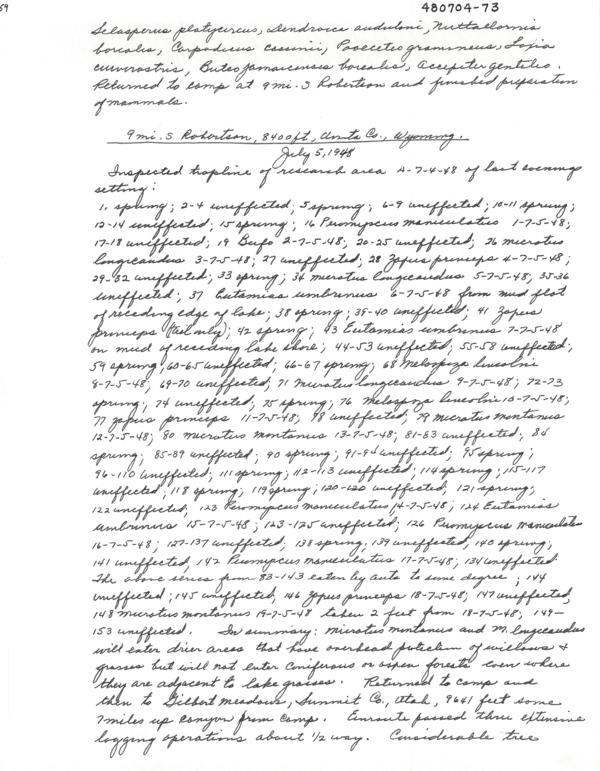 59
480704-73
Selasperus platycircus, Dendroica auduboni, Nuttallornis
borealis, Carpodicus cassinii, Pooecetes gramineus, Loxia
curvirostris, Buteo jamaicensis borealis, Accipter gentilis.
Returned to camp at 9 mi. S Robertson and finished preparation
of mammals.
9 mi. S Robertson, 8400 ft, Uinta Co., Wyoming.
July 5, 1948
Inspected trapline of research area 4-7-4-48 of last evenings
setting:
1. sprung; 2-4 uneffected; 5 sprung; 6-9 uneffected; 10-11 sprung;
12-14 uneffected; 15 sprung; 16 Peromyscus maniculatus 1-7-5-48;
17-18 uneffected; 19 Bufo 2-7-5-48; 20-25 uneffected; 26 microtus
longicaudus 3-7-5-48; 27 uneffected; 28 Zapus princeps 4-7-5-48;
29-32 uneffected; 33 sprung; 34 microtus longicaudus 5-7-5-48; 35-36
uneffected; 37 Eutamias umbrinus 6-7-5-48 from mud flat
of receding edge of lake; 38 sprung; 39-40 uneffected; 41 Zapus
princeps (tail only); 42 sprung; 43 Eutamias umbrinus 7-7-5-48
on mud of receding lake shore; 44-53 uneffected; 55-58 uneffected;
59 sprung; 60-65 uneffected; 66-67 sprung; 68 Melospiza lincolni
8-7-5-48; 69-70 uneffected; 71 Microtus longicaudus 9-7-5-48; 72-73
sprung; 74 uneffected; 75 sprung; 76 Melospiza lincolni 10-7-5-48;
77 Zapus princeps 11-7-5-48; 78 uneffected; 79 Microtus montanus
12-7-5-48; 80 microtus montanus 13-7-5-48; 81-83 uneffected; 84
sprung; 85-89 uneffected; 90 sprung; 91-94 uneffected; 95 sprung;
96-110 uneffected; 111 sprung; 112-113 uneffected; 114 sprung; 115-117
uneffected; 118 sprung; 119 sprung; 120-120 uneffected; 121 sprung;
122 uneffected; 123 Peromyscus maniculatus, 14-7-5-48; 124 Eutamias
umbrinus 15-7-5-48; 123-125 uneffected; 126 Peromyscus maniculatus
16-7-5-48; 127-137 uneffected; 138 sprung, 139 uneffected, 140 sprung;
141 uneffected, 142 Peromyscus maniculatus 17-7-5-48; 134 uneffected
The above series from 83-143 eaten by ants to some degree; 144
uneffected; 145 uneffected, 146 Zapus princeps 18-7-5-48; 147 uneffected,
148 Microtus montanus 19-7-5-48 taken 2 feet from 18-7-5-48; 149-
153 uneffected. In summary: Microtus montanus and M. longicaudus
will enter drier areas that have overhead of willows &
grasses but will not enter coniferous or aspen forests even where
they are adjacent to lake grasses. Returned to camp and
then to Gilbert meadows, Summit Co., Utah, 9641 feet some
7 miles up canyon from camp. Enroute passed three extensive
logging operations about 1/2 way. Considerable tree